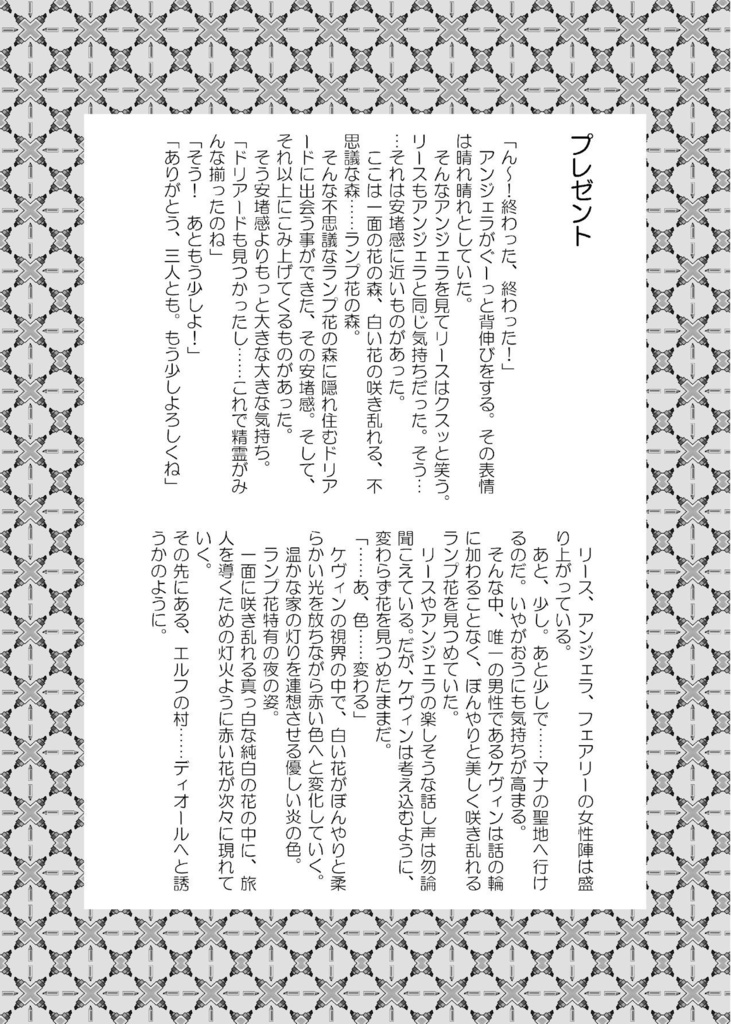 プレゼント
「ん～！終わった、終わった！」
　アンジェラがぐーっと背伸びをする。その表情
は晴れ晴れとしていた。
　そんなアンジェラを見てリースはクスッと笑う。
リースもアンジェラと同じ気持ちだった。そう…
…それは安堵感に近いものがあった。
　ここは一面の花の森、白い花の咲き乱れる、不
思議な森……ランプ花の森。
　そんな不思議なランプ花の森に隠れ住むドリア
ードに出会う事ができた、その安堵感。そして、
それ以上にこみ上げてくるものがあった。
　そう安堵感よりもっと大きな大きな気持ち。
「ドリアードも見つかったし……これで精霊がみ
んな揃ったのね」
「そう！　あともう少しよ！」
「ありがとう、三人とも。もう少しよろしくね」
　リース、アンジェラ、フェアリーの女性陣は盛
り上がっている。
　あと、少し。あと少しで……マナの聖地へ行け
るのだ。いやがおうにも気持ちが高まる。
　そんな中、唯一の男性であるケヴィンは話の輪
に加わることなく、ぼんやりと美しく咲き乱れる
ランプ花を見つめていた。
　リースやアンジェラの楽しそうな話し声は勿論
聞こえている。だが、ケヴィンは考え込むように、
変わらず花を見つめたままだ。
「……あ、色……変わる」
　ケヴィンの視界の中で、白い花がぼんやりと柔
らかい光を放ちながら赤い色へと変化していく。
　温かな家の灯りを連想させる優しい炎の色。
　ランプ花特有の夜の姿。
　一面に咲き乱れる真っ白な純白の花の中に、旅
人を導くための灯火ように赤い花が次々に現れて
いく。
その先にある、エルフの村……ディオールへと誘
うかのように。